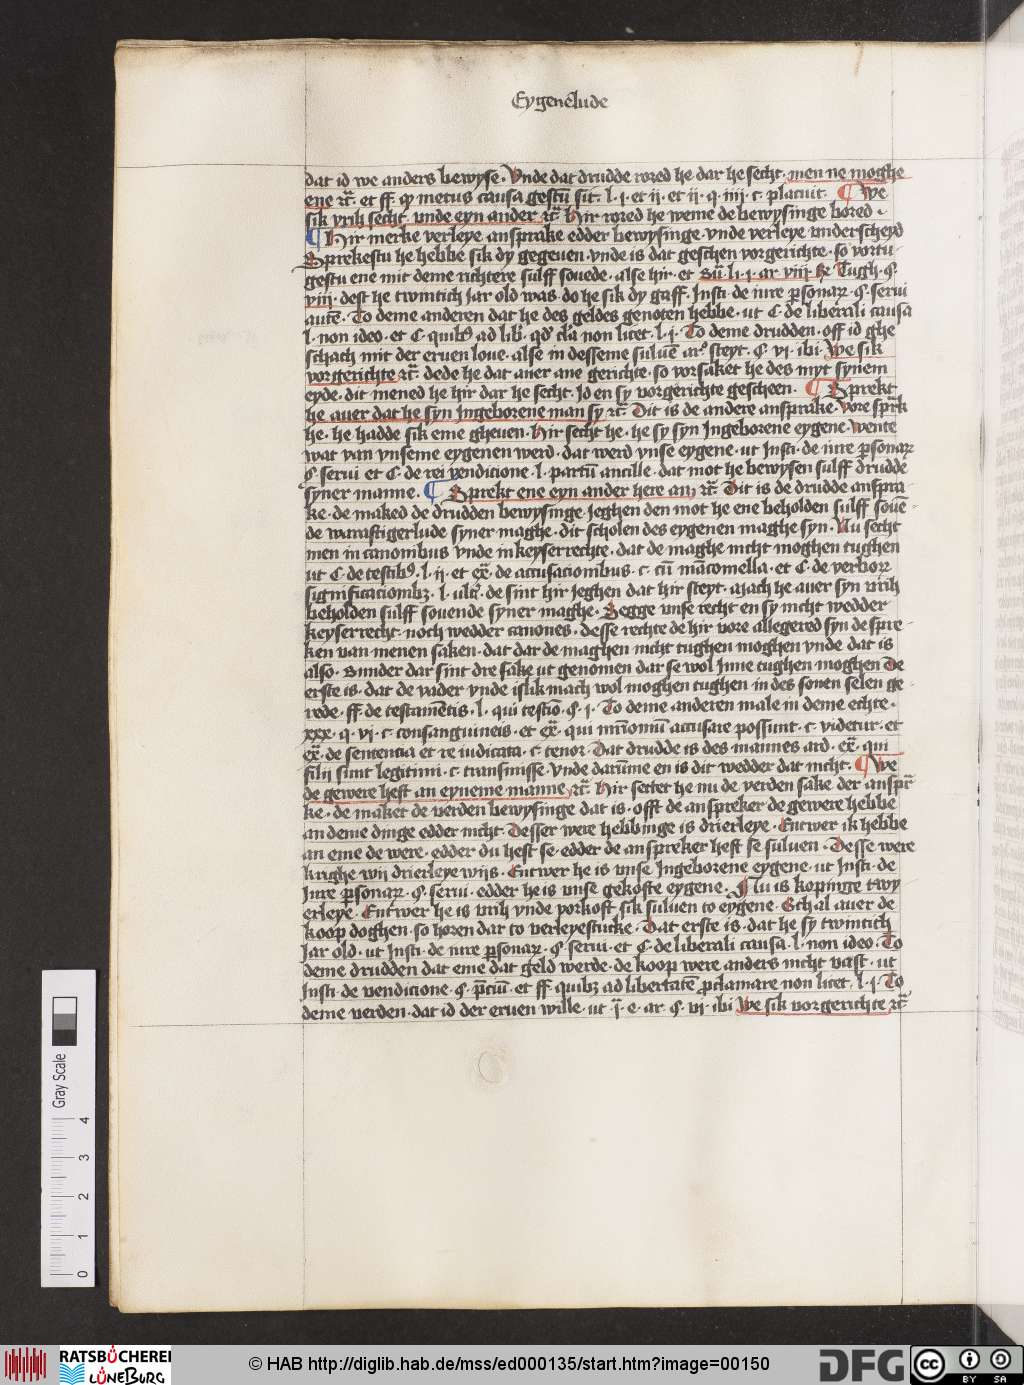 Eygenelude
dat id we anders bewyse. Vnde dat drudde rored he dar he secht. men ne moghe
ene ꝛc̄. et ff. qͥ metus causa gestū sit. l. i. et ii. et ii. q. iiii. c. placuit. ¶ We
sik vrih secht. vnde eyn ander ꝛc̄. Hir rored he weme de bewysinge bored.
¶ Hir merke verleye ansprake edder bewysinge. vnde verleye vnderscheyd
Sprekestu he hebbe sik dy gegeuen. vnde is dat geschen vorgerichte. so vortu-
gestu ene mit deme richtere sulff souede. alse hir. et
viii. dest he twintich Jar old was. do he sik dy gaff. Insti. de iure ꝑsonaꝝ. §. serui
autē. To deme anderen dat he des geldes genoten hebbe. ut C. de liberali causa
l. non ideo. et C. quibꝰ ad lib̕. non licet. l. i. To deme drudden. off id ghe
schach mit der eruen loue. alse in desseme suluē ar̕. steyt. §. vi. ibi. We sik
vorgerichte ꝛc̄. dede he dat auer ane gerichte. so vorsaket he des myt synem
eyde. dit mened he hir dar he secht. Jo en sy vorgerichte gescheen. ¶ Sprekt
he auer dat he syn Ingeborene man sy ꝛc̄. Dit is de andere ansprake. Vore sprak
he. he hadde sik eme gheuen. Hir secht he. he sy syn Ingeborene eygene. Wente
wat van vnseme eygenen werd. dat werd vnse eygene. ut Insti. de iure ꝑsonaꝝ
§. serui et C. de rei vendicione. l. partū ancille. dat mot he bewysen sulff drudde
syner manne. ¶ Sprekt ene eyn ander here an ꝛc̄. Dit is de drudde anspra-
ke. de maked de drudden bewysinge. Jeghen den mot he ene beholden sulff soue-
de warastigerlude syner maghe. dit scholen des eygenen maghe syn. Nu secht
men in canonibus vnde in keyserrechte. dat de maghe nicht moghen tughen
ut C. de testibꝰ. l. ii. et ex̄. de accusacionibus. c. cū. et C. de verborꝝ
significacionibꝫ. l. ultꝭ. de sint hir Jeghen dat hir steyt. Mach he auer syn vrih
beholden sulff souende syner maghe. Segge vnse recht en sy nicht wedder
keyserrecht. noch wedder canones. desse rechte de hir vore allegered syn de spre-
ken van menen saken. dat dar de maghen nicht tughen moghen vnde dat is
also. Sunder dar sint dre sake ut genomen dar se wol Inne tughen moghen De
erste is. dat de vader vnde islik mach wol moghen tughen. in des sonen selen ge-
rede. ff. de testamētis. l. qui testio. §. i. To deme anderen male in deme echte.
xxx. q. vi. c. consanguineis. et ex̄. qui mr̄imoniū accusare possunt. c. videtur. et
ex̄. de sentencia et re iudicata. c. tenor. Dat drudde is des mannes ard. ex̄. qui
filii sunt legitimi. c. transmisse. vnde darūme en is dit wedder dat nicht. ¶ We
de gewere heft an eyneme manne ꝛc̄. Hir settet he nu de verden sake der anspra-
ke. de maket de verden bewysinge dat is. offt de anspreker de gewere hebbe
an deme dinge edder nicht. Desser were hebbinge is drierleye. Entwer ik hebbe
an eme de were. edder du hest se. edder de anspreker heft se suluen. Desse were
krighe wij drierleye wijs. Entwer he is vnse Ingeborene eygene. ut Insti. de
Iure ꝑsonaꝝ. §. serui. edder he is vnse gekofte eygene. Nu is kopinge twy
erleye. Entwer he is vrih vnde vorkoft sik suluen to eygene. Schal auer de
koop doghen. so horen dar to verleyestucke. Dat erste is. dat he sy twintich
Jar old. ut Insti. de iure ꝑsonaꝝ. §. serui. et C. de liberali causa. l. non ideo. To
deme drudden dat eme dat geld werde. de koop were anders nicht vast. ut
Insti. de vendicione. §. p̄ciū. et ff. quibꝫ ad libertatē ꝓclamare non licet. l. i. To
deme verden. dat id der eruen wille. ut j̄. e. ar. §. vi. ibi We sik vorgerichte ꝛc̄
Gray Scale
0 1 2 3 4
RATSBÜCHEREI
LÜNEBURG
© HAB http://diglib.hab.de/mss/ed000135/start.htm?image=00150
DFG
cc BY SA